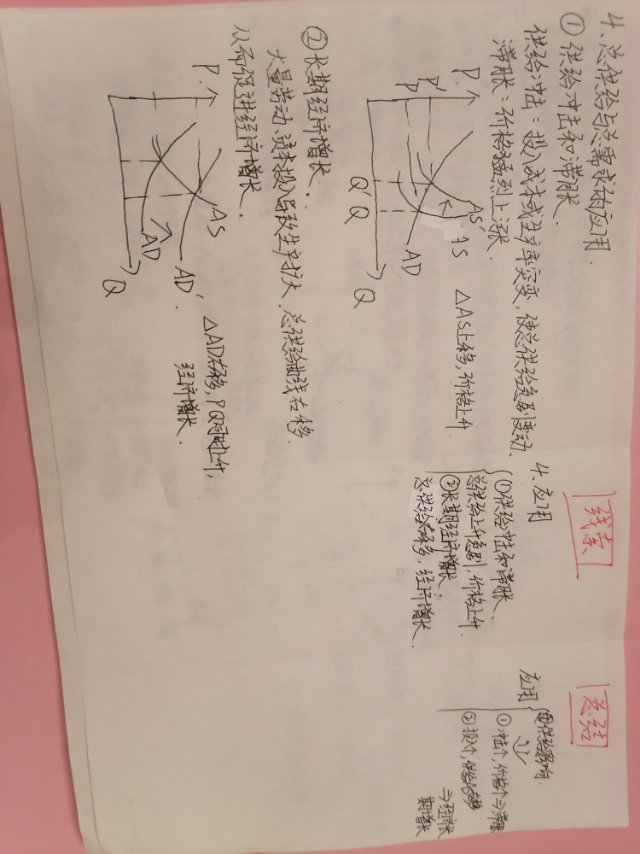 4.总供给与总需求的应用.
① 供给冲击和滞胀.
供给冲击：投入成本或生产率突变，使总供给急剧变动、
滞胀：价格猛烈上涨.
P
P'
P
AS'
AS
AD
Q' Q
Q
△AS上移，价格上升.
②长期经济增长.
大量劳动、资本投入导致生产扩大.总供给曲线右移.
从而促进经济增长.
P
AS
AD
AD'
Q
△AD右移，PQ同时上升，
经济增长.
线索
4.应用
①供给冲击和滞胀.
总供给上升急剧，价格上升.
②长期经济增长.
总供给右移，经济增长.
总结
应用
供给影响.
①
价格个⇒滞胀
②投入个，供给
⇒经济长
期增长